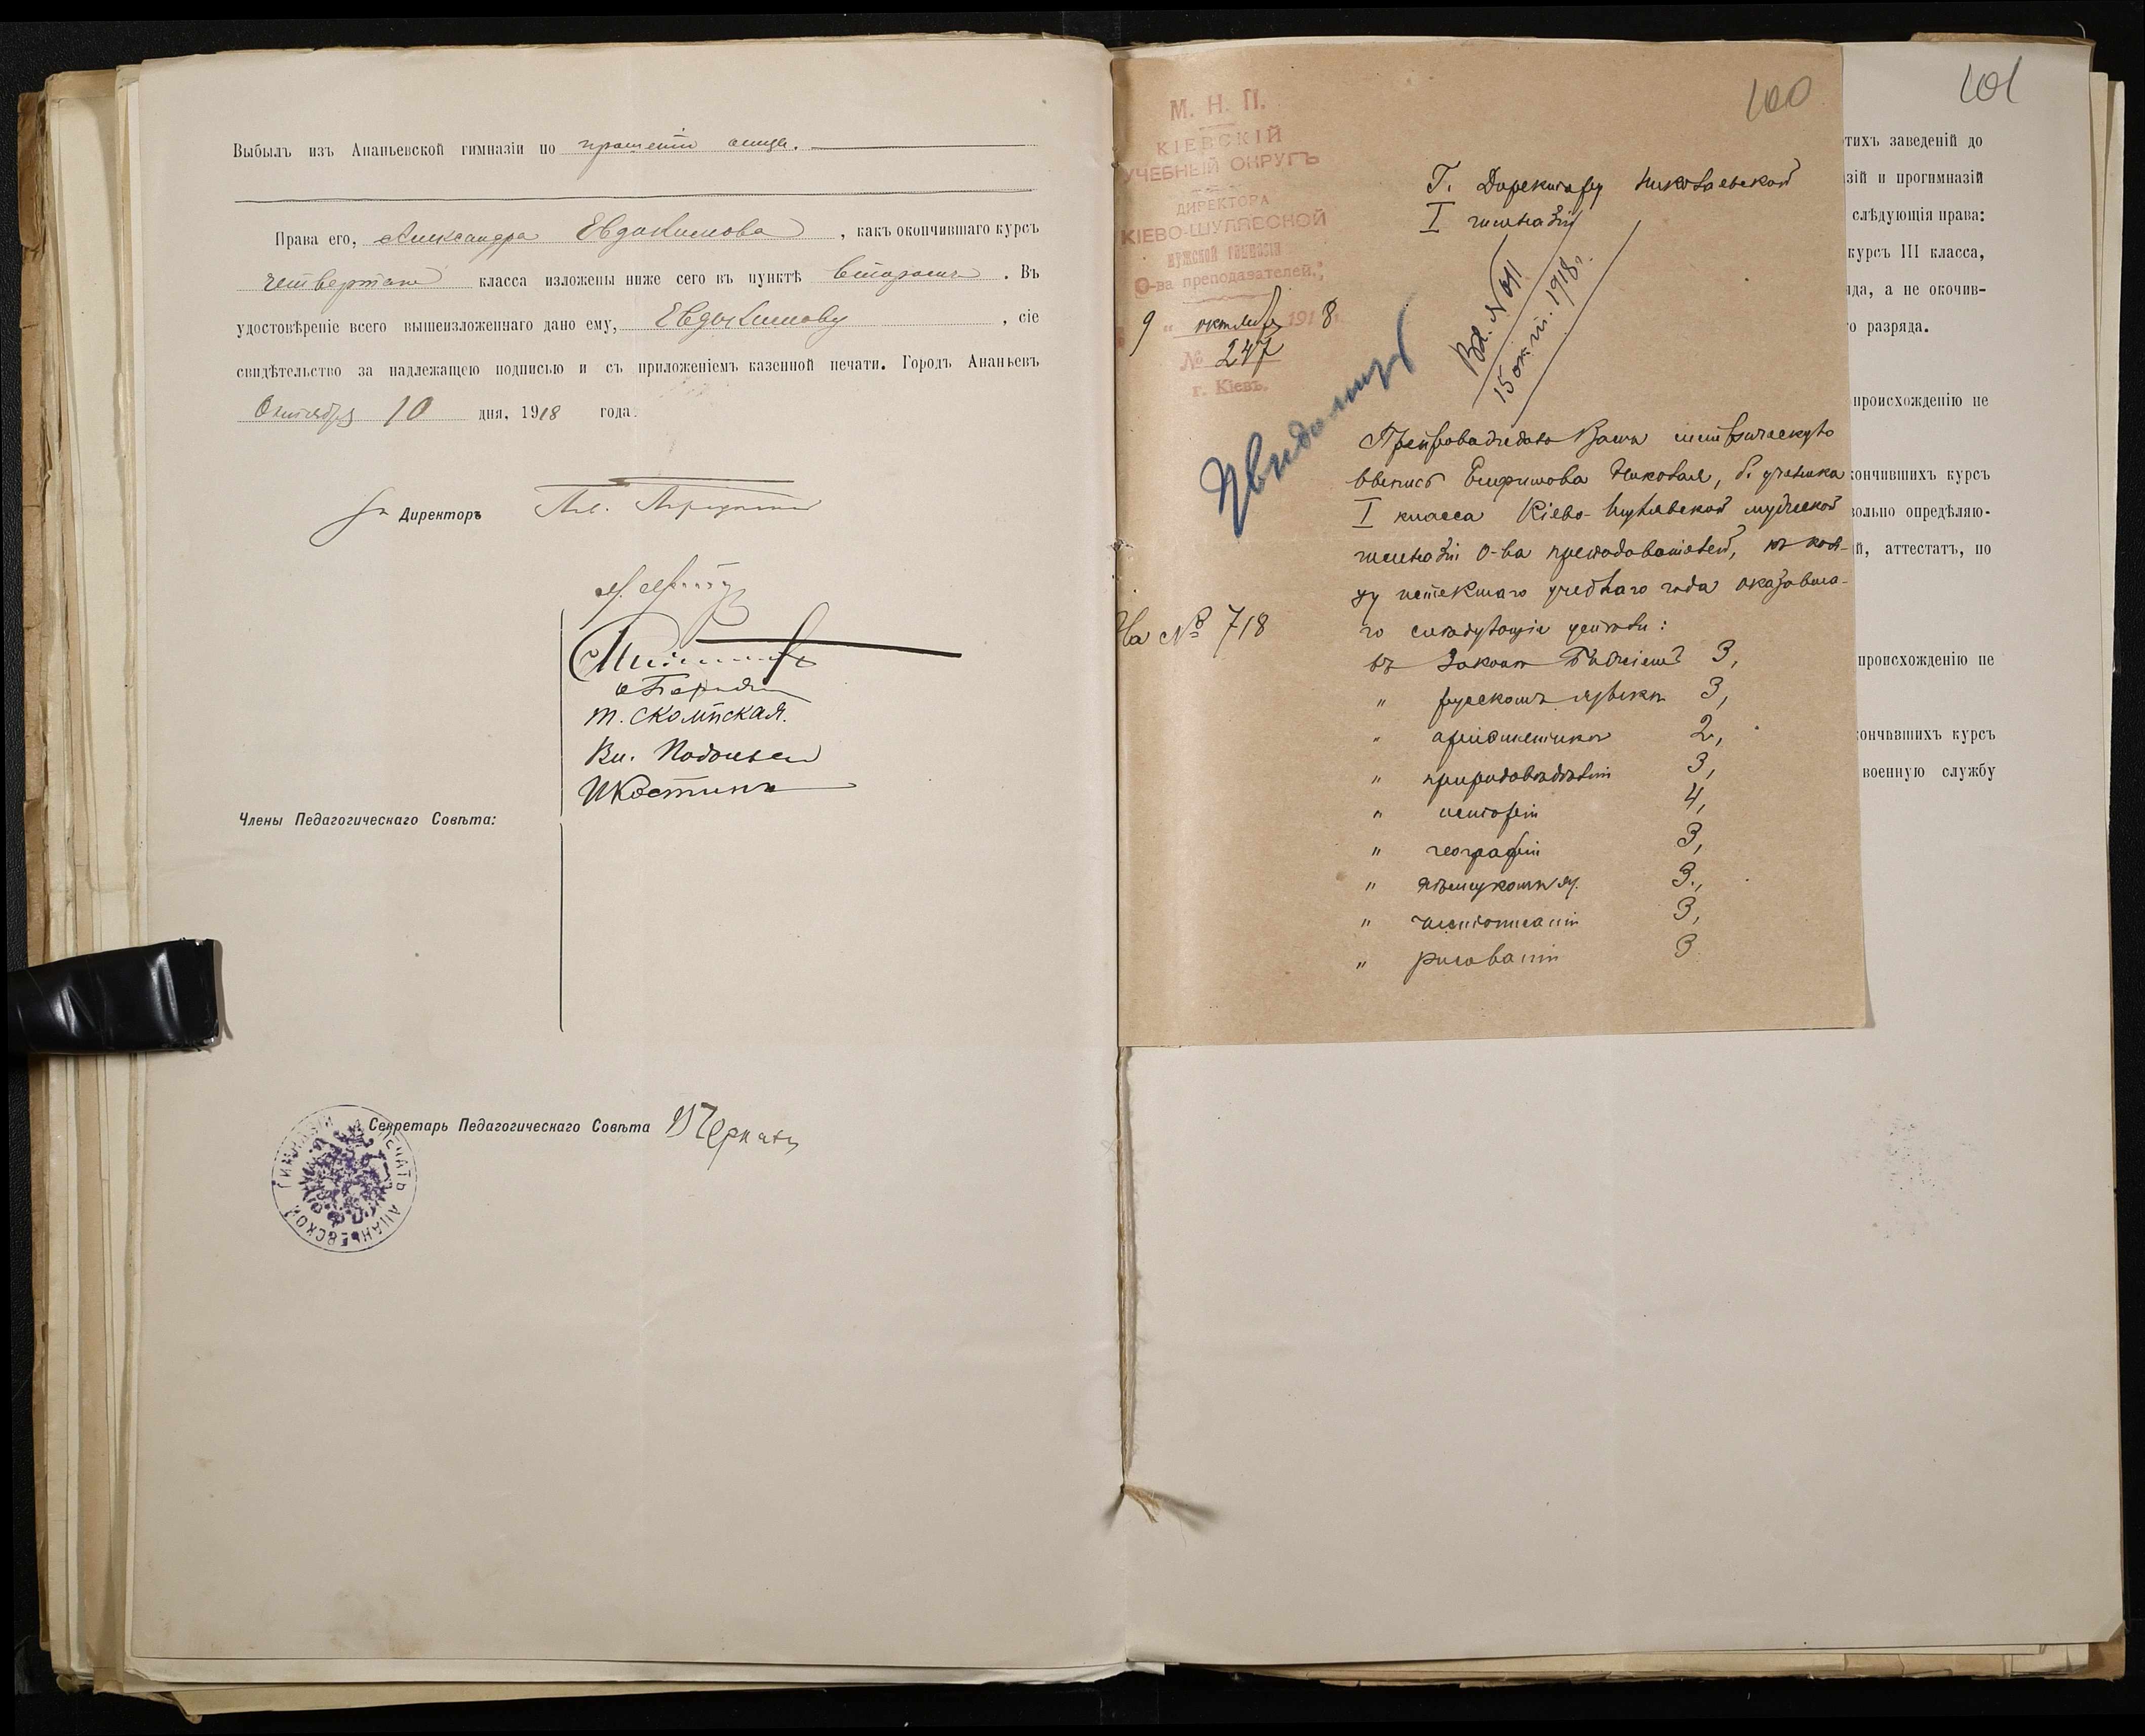 Выбылъ изъ Ананьевской гимназіи по прошенію отца.
Права его, Александра Евдокимова, какъ окончившаго курсъ
четвертаго класса изложены ниже сего въ пунктѣ второмъ. Въ
удостовѣреніе всего вышеизложеннаго дано ему, Евдокимову, сіе
свидѣтельство за надлежащею подписью и съ приложеніемъ казенной печати. Городъ Ананьевъ
Октября 10 дня, 1918 года.
Директоръ
Т. Скомпская.
Вл.
И Костинъ
Члены Педагогическаго Совѣта:
Секретарь Педагогическаго Совѣта
ПЕЧАТЬ АНАНЬЕВСКОЙ ГИМНАЗІИ
100
М. Н. П.
КІЕВСКІЙ
УЧЕБНЫЙ ОКРУГЪ
ДИРЕКТОРА
КІЕВО-ШУЛЯВСКОЙ
мужской гимназіи
О-ва преподавателей.
9 " октября 1918
№ 247
г. Кіевъ.
Г. Директору Николаевской
I гимназіи
Вх. №
15 окт. 1918 г.
Препровождаю Вамъ метрическую
выпись Ефимова Николая, б. ученика
I класса Кіево-Шулявской мужской
гимназіи О-ва преподавателей, къ кон-
цу истекшаго учебнаго года оказавша-
го слѣдующіе успѣхи:
На № 718
въ Законѣ Божіемъ 3,
" русскомъ языкѣ 3,
" ариѳметикѣ 2,
" природовѣдѣніи 3,
" исторіи 4,
" географіи 3,
" нѣмецкомъ яз. 3,
" чистописаніи 3,
" рисованіи 3
101
этихъ заведеній до
зій и прогимназій
слѣдующія права:
курсъ III класса,
да, а не окончив-
о разряда.
происхожденію не
кончившихъ курсъ
вольно опредѣляю-
й, аттестатъ, по
происхожденію не
кончившихъ курсъ
военную службу